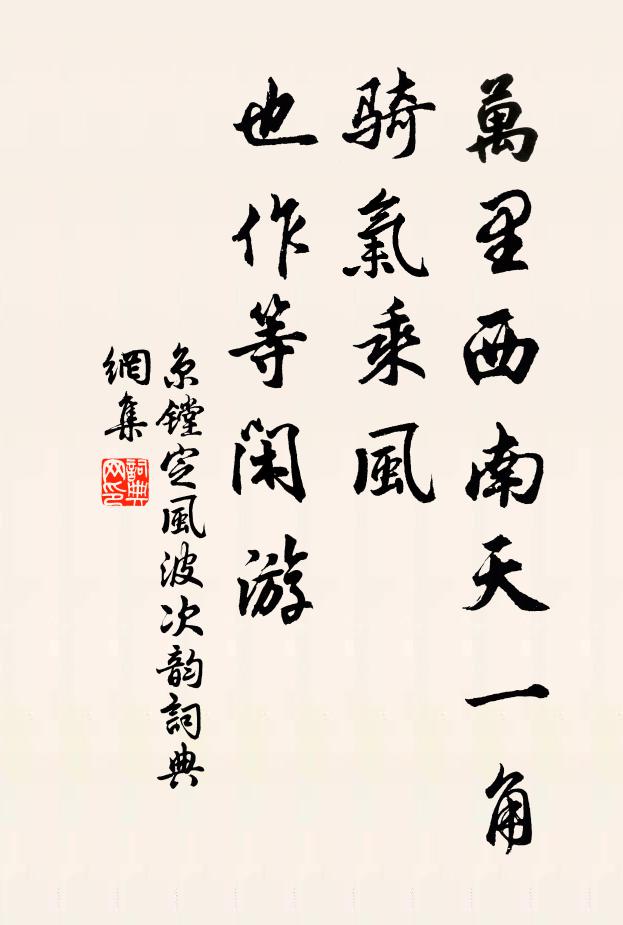 萬里西南天一角
騎氣乘風
也作等閑游
京镗定風波次韵詞典
網集
詞典网印